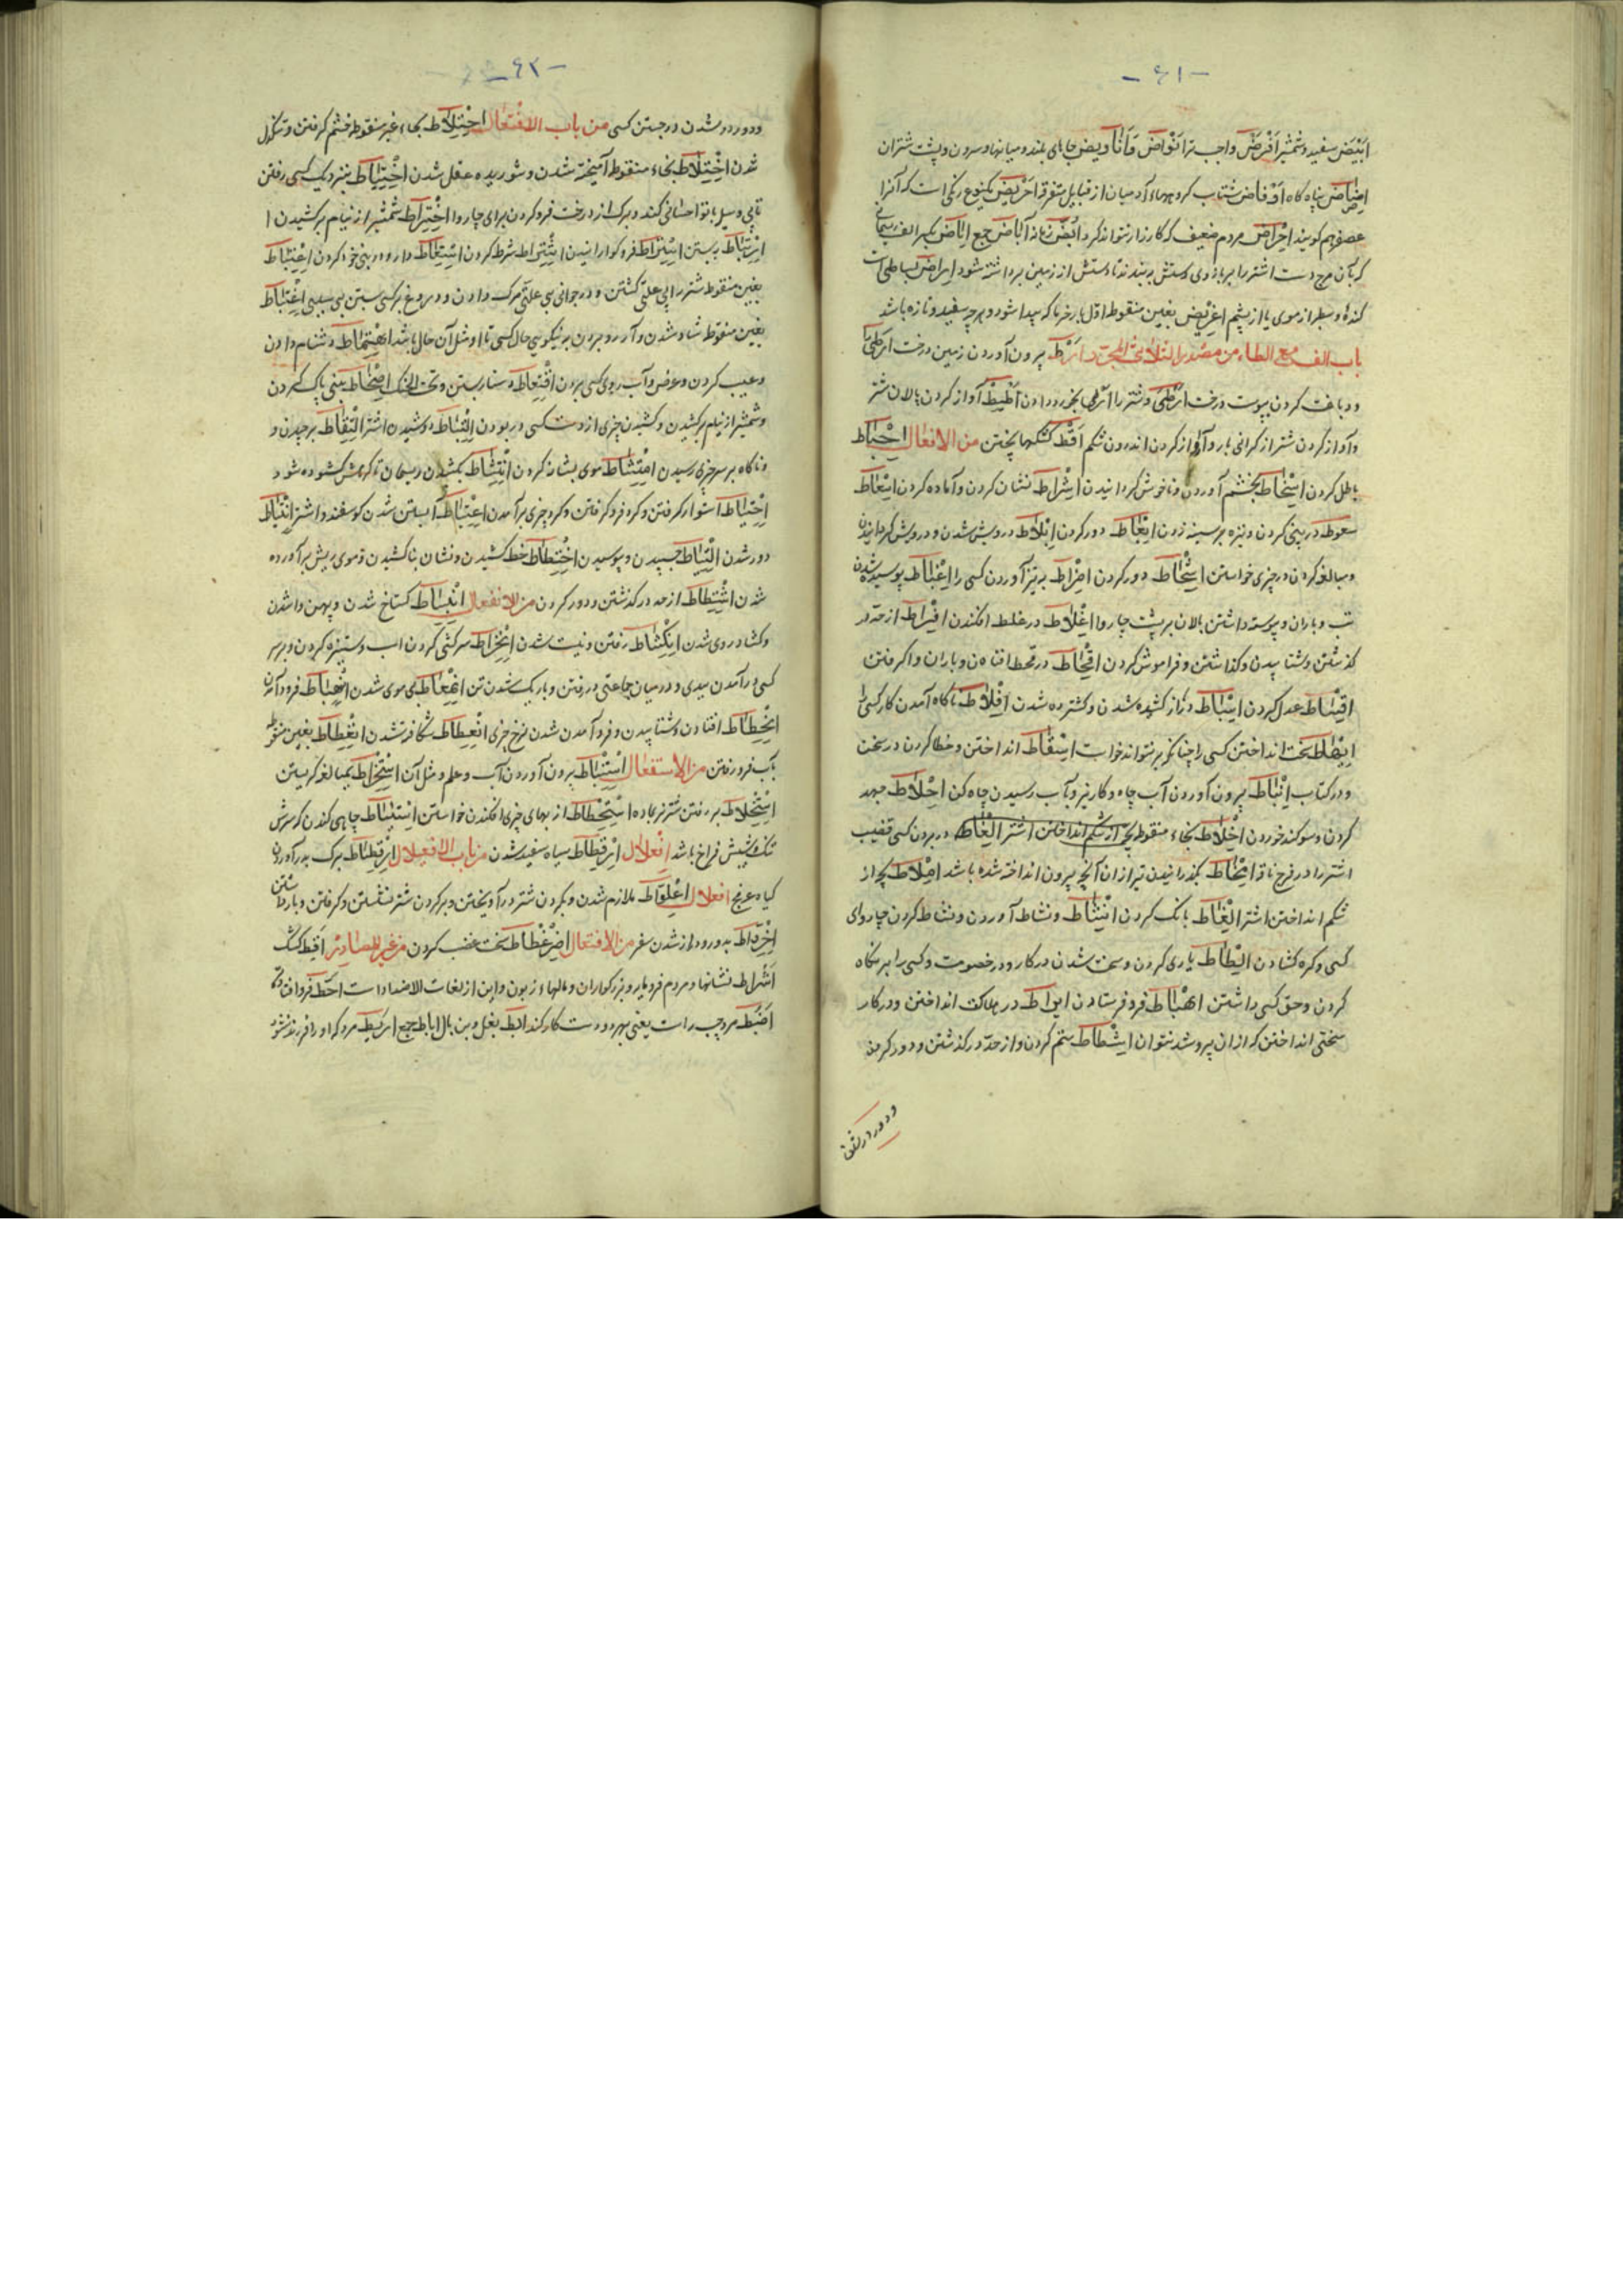 -۶۱-
ابْیَض سفید و شمشیر اَفْرض واجب‌تر اَنْواض وَ اَناویض جاهای بلند و میانها و سرون و پشت شتران
اِضَاض پناه گاه اَوْفاض شتاب گروهها و آدمیان از قبایل متفرقه اِحْرِیض یکنوع رنگی است که آنرا
عصفر هم گویند اِحْراض مردم ضعیف که کارزار نتواند کرد اُبُضْ زمانه آباض جمع اِباض بکسر الف ریسمانی
که بآن مچ دست اشتر را بر بازوی دستش ببندند تا دستش از زمین برداشته شود اِراض بساطی است
گنده و سطبر از موی یا از پشم اِغریض بغین منقوطه اوّل بار خرما که پیدا شود و هرچه سفید و تازه باشد
باب الف مع الطاء من مصدر الثلاثی المجرد اَرْط بیرون آوردن زمین درخت ارطی را
و دباغت کردن بپوست درخت ارطی و شتر را ارطی بخورد دادن اَطیط آواز کردن پالان شتر
و آواز کردن شتر از گرانی بار و آواز کردن اندرون شکم اَقْط کشکها پختن من الافعال اِحْباط
باطل کردن اِسْخاط بخشم آوردن و ناخوش گردانیدن اِشْراط نشان کردن و آماده کردن اِسْعاط
سعوط در بینی کردن و نیزه بر سینه زدن اِبْعاط دور کردن اِبْلاط درویش شدن و درویش گردانیدن
و مبالغه کردن در چیزی خواستن اِشْحاط دور کردن اِضْراط به تیز آوردن کسی را اِغْباط پیوسته شدن
تب و باران و پیوسته داشتن پالان بر پشت چاروا اِغْلاط در غلط افکندن اِفْراط از حدّ در
گذشتن و شتابیدن و گذاشتن و فراموش کردن اِقْحاط در قحط افتادن و باران واگرفتن
اِقْساط عدل کردن اِسْباط دراز کشیده شدن و گسترده شدن اِفْلاط ناگاه آمدن کار کسی را
سخت انداختن کسی را چنانکه برنتواند خواست اِسْقاط انداختن و خطا کردن در سخن
و در کتاب اِنْباط بیرون آوردن آب چاه و کاریز و بآب رسیدن چاه کن اِحْلاط جهد
کردن و سوگند خوردن اِخْلاط بخاء منقوطه بچّه از شکم انداختن اشتر اِلْغاط در بردن کسی قضیب
اشتر را در فرج ناقه اِمْخاط بگذرانیدن تیر از آن آنچه بیرون انداخته شده باشد اِمْلاط بچه از
شکم انداختن اشتر اِلْغاط بانگ کردن اِنْشاط و نشاط آوردن و نشاط کردن چاروای
کسی و گره گشادن اِلْطاط یاری کردن و سخت شدن در کار و در خصومت و کسی را بر نگاه
کردن و حق کسی داشتن اِهْباط فرو فرستادن اِیراط در هلاکت انداختن و در کار
سختی انداختن که از آن بیرون شد نتوان اِشْطاط ستم کردن و از حدّ در گذشتن و دور کردن
و دور در شدن
-۶۲-
و دور در شدن در جستن کسی من باب الافتعال اِحْتِلاط بحاء غیر منقوطه خشم گرفتن و تنگدل
شدن اِخْتِلاط بخاء منقوطه آمیخته شدن و شوریده عقل شدن اِخْتِباط بنزدیک کسی رفتن
تا بی وسیله با تو احسانی کند و برگ از درخت فرو کردن برای چاروا اِخْتِراط شمشیر از نیام برکشیدن
اِرْتِباط بربستن اِسْتِراط فرو گوارانیدن اِشْتِراط شرط کردن اِسْتِعاط دارو در بینی خود کردن اِعْتِباط
بغین منقوطه شتر را بی علتی کشتن و در جوانی بی علتی مرگ دادن و دروغ بر کسی بستن بی سببی اِغْتِباط
بغین منقوطه شاد شدن و آرزو بردن بر نیکویی حال کسی تا او مثل آن حال باشد اِهْتِماط دشنام دادن
و عیب کردن و عرض و آب روی کسی بردن اِقْتِعاط دستار بستن و تحت الحنک اِمْتِخاط بینی پاک کردن
و شمشیر از نیام برکشیدن و کشیدن چیزی از دست کسی و ربودن اِلْتِباط دوشیدن اشتر اِلْتِقاط برچیدن و
و ناگاه بر سر چیزی رسیدن اِمْتِشاط موی بشانه کردن اِنْتِشاط کشیدن ریسمان تا گرهش گشوده شود
اِحْتِیاط استوار کرفتن و گرد فرو گرفتن و گرد چیزی برآمدن اِعْتِیاط آبستن شدن گوسفند و اشتر اِنْتِیاط
دور شدن اِلْتِیاط چسبیدن و پوسیدن اِخْتِطاط خط کشیدن و نشان بنا کشیدن و موی بریش برآورده
شدن اِشْتِطاط از حد در گذشتن و دور کردن من الانفعال اِنْبِساط گستاخ شدن و پهن واشدن
و گشاده روی شدن اِنْکِشاط رفتن و نیست شدن اِنْخِراط سرکشی کردن اسب و ستیزه کردن و بر سر
کسی درآمدن ببدی و در میان جماعتی در رفتن و باریک شدن تن اِمّعاط بی موی شدن اِنْهِباط فرود آمدن
اِنْحِطاط افتادن و شتابیدن و فرود آمدن شدن نرخ چیزی اِنْعِطاط شکافته شدن اِنْغِطاط بغین منقوطه
بآب فرو رفتن من الاستفعال اِسْتِنْباط بیرون آوردن آب و علم و مثل آن اِسْتِخْراط بمبالغه گریستن
اِسْتِخْلاط بر رفتن شتر نر بماده اِسْتِحْطاط از بهای چیزی افکندن خواستن اِسْتِنْباط چاهی کندن که سرش
تنگ و پیشش فراخ باشد اِفعِلال اِرْقِطاط سیاه سفید شدن من باب الافعیلال اِرْقیطاط برگ بدرآوردن
گیاه عرفج اِفعِلال اِعْلِوّاط ملازم شدن و بگردن شتر درآویختن و بر گردن شتر نشستن و گرفتن و بازداشتن
اِخْرِوّاط بدور و دراز شدن سفر من الافتعال اِضْرِغْطاط سخت غضب کردن من غیر المصادر اَقِط کشک
اَشراط نشانها و مردم فرومایه و بزرگواران و مالهاء زبون و این از لغات الاضداد است اَحَطّ فرو افتاده
اَضْبَط مرد چپ راست یعنی بهر دو دست کار کند اِبْط بغل و بن بال اِباط جمع اَمْرَط مرد که او را فرزند نشود